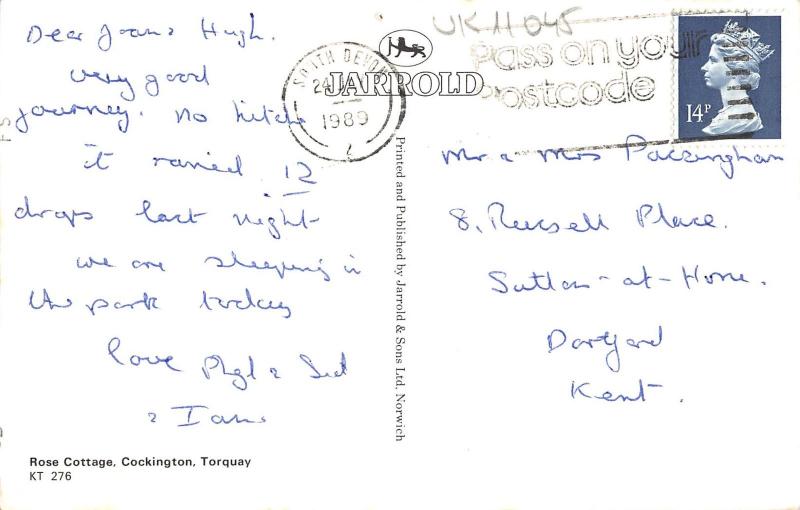 Dear Joan & Hugh.
very good
journey. no hitches
it rained 12
drops last night
we are sleeping in
the park today
love Phyl & Sid
& Ian.
Rose Cottage, Cockington, Torquay
KT 276
JARROLD
Printed and Published by Jarrold & Sons Ltd. Norwich
UK 11 045
SOUTH DEVON
24
1989
Pass on your
Postcode
14P
Mr & Mrs Packingham
8, Russell Place.
Sutton-at-Hone.
Dartford
Kent.